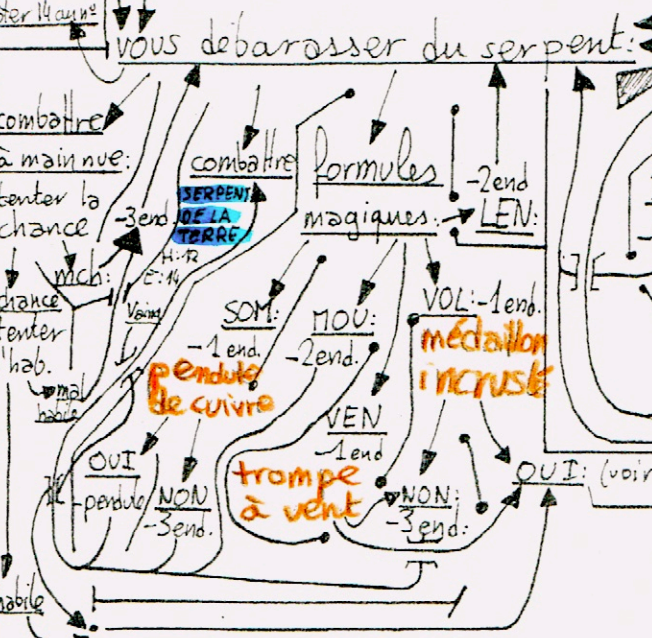 vous débarasser du serpent:
combattre
à main nue:
tenter la
chance
-3end.
mch:
chance
tenter
l'hab.
mal
habile
habile
combattre
SERPENT
DE LA
TERRE
H:12
E:14
Vaing
formules
magiques:
-2end
LEN:
SOM:
-1end.
pendule
de cuivre
OUI
-pendule
NON
-3end.
MOU:
-2end.
VEN
-1end
trompe
à vent
VOL:-1end.
médaillon
incrusté
NON:
-3end:
OUI: (voir